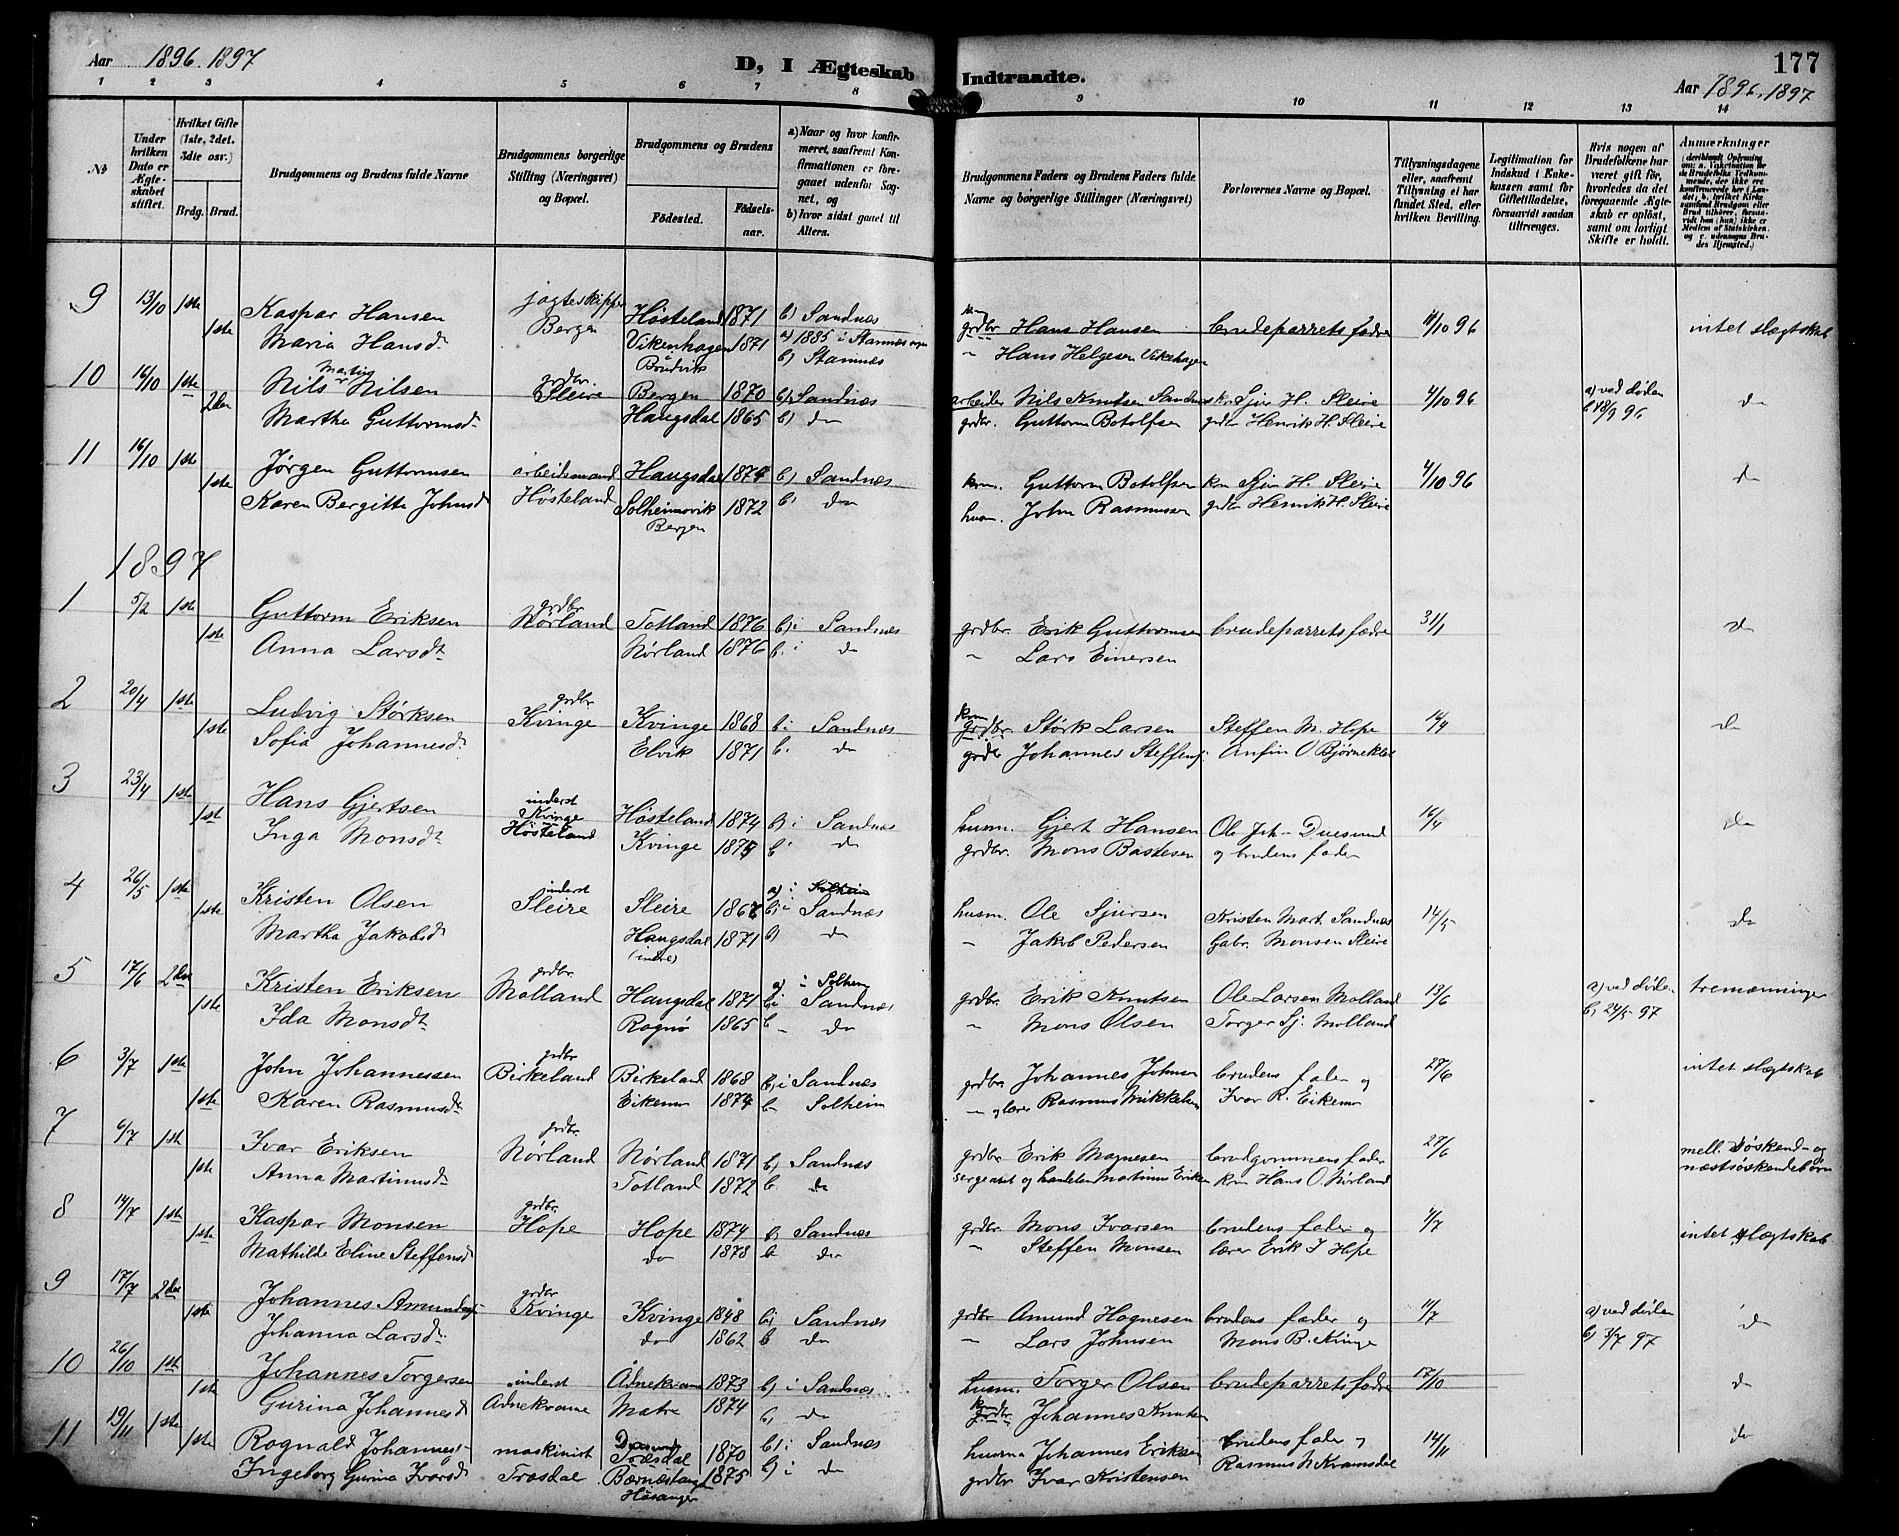 Aar 1896. 1897
D, I Ægteskab
Indtraadte.
177
Aar 1896. 1897
1 2 3 4 5 6 7 8 9 10 11 12 13 14
No
Under hvilken Dato er Ægteskabet stiftet.
Hvilket Gifte (1ste, 2det. 3die osv.)
Brdg. Brud.
Brudgommens og Brudens fulde Navne
Brudgommens borgerlige Stilling (Næringsvei) og Bopæl.
Brudgommens og Brudens
Födested. Födselsaar.
a) Naar og hvor konfirmeret, saafremt Konfirmationen er foregaaet udenfor Sognet, og
b) hvor sidst gaaet til Alters.
Brudgommens Faders og Brudens Faders fulde Navne og borgerlige Stillinger (Næringsvei)
Forlovernes Navne og Bopæl.
Tillysningsdagene eller, saafremt Tillysning ei har fundet Sted, efter hvilken Bevilling.
Legitimation for Indskud i Enkekassen samt for Giftetilladelse, forsaavidt saadan tiltrænges.
Hvis nogen af Brudefolkene har været gift för, hvorledes da det foregaaende Ægteskab er oplöst, samt om lovligt Skifte er holdt.
Anmærkninger
9 13/10 1ste Kaspar Hansen jagteskipper Høsteland 1871 b) Sandnæs grdbr Hans Hansen brudeparrets fædre 4/10 96 intet slægtskab
1ste Maria Hansd. Bergen Vikenhagen 1871 a) 1885 i Stamnæs
Brudvik b) Stamnæs " Hans Helgesen Vikehagen
10 16/10 1ste Nils Martin Nilsen grdbr. Bergen 1870 b) Sandnæs arbeider Nils Knutsen Sandnæs Sjur H. Sleire 4/10 96 a) ved døden do
2den Martha Guttormsd. Sleire Haugsdal 1865 b) do grdbr. Guttorm Botolfsen grdbr Henrik H. Sleire b) 18/9 96
11 16/10 1ste Jørgen Guttormsen arbeidsmand Haugsdal 1874 b) Sandnæs km. Guttorm Botolfsen Sjur H. Sleire 4/10 96 do
1ste Karen Bergitte Johnsd. Høsteland Solheimsvik 1872 b) do husm. John Rasmussen grdbr Henrik H. Sleire
Bergen
1897
1 5/2 1ste Guttorm Eriksen grdbr Totland 1876 b) i Sandnæs grdbr. Erik Guttormsen brudeparrets fædre 31/1 do
1ste Anna Larsdt. Nørland Nørland 1876 b. " do " Lars Einersen
2 20/4 1ste Ludvig Størksen grdbr Kvinge 1868 b. Sandnæs km grdbr. Størk Larsen Steffen M. Hope 16/4 do
1ste Sofia Johannesdt. Kvinge Elvik 1871 b. do grdbr Johannes Steffens. Anfin O. Bjørneklet
3 23/4 1ste Hans Gjertsen inderst Høsteland 1874 b) i Sandnæs husm. Gjert Hansen Ole Joh. Duesund 16/4 do
1ste Inga Monsdt. Kvinge Høsteland Kvinge 1875 b. do grdbr. Mons Bastesen og brudens fader
4 26/5 1ste Kristen Olsen inderst Sleire 1867 a) i Solheim b) i Sandnæs husm. Ole Sjursen Kristen Mart. Sandnæs 14/5 do
1ste Martha Jakobsd. Sleire Haugsdal (indre) 1871 b) do " Jakob Pedersen Gabr. Monsen Sleire
5 17/6 2den Kristen Eriksen grdbr. Haugsdal 1871 a) i Solheim b) i Sandnæs grdbr. Erik Knutsen Ole Larsen Molland 13/6 a) ved døden tremænninger
1ste Ida Monsdt. Molland Rognø 1865 b " do " Mons Olsen Torger Sj. Molland b) 24/5 97
6 3/7 1ste John Johannessen grdbr Birkeland 1868 b) i Sandnæs grdbr. Johannes Johnsen brudens fader og 27/6 intet slægtskab
1ste Karen Rasmusdt. Birkeland Eikemo 1874 b " Solheim " og lærer Rasmus Mikkelsen Ivar R. Eikemo
7 6/7 1ste Ivar Eriksen grdbr. Nørland 1871 b) Sandnæs grdbr. Erik Magnesen brudgommens fader 27/6 mell. søskend- og
1ste Anna Martinusd. Nørland Totland 1872 b. do sergeant og handelsm Martinus Eriksen km Hans O. Nørland næstsøskendebørn
8 14/7 1ste Kaspar Monsen grdbr. Hope 1874 b) Sandnæs grdbr Mons Ivarsen brudens fader og 4/7 intet slægtskab
1ste Mathilde Eline Steffensd. Hope do 1878 b. do " Steffen Monsen lærer Erik I Hope
9 17/7 2den Johannes Amundsen grdbr Kvinge 1848 b) Sandnæs grdbr Amund Hagnesen brudens fader og 11/7 a) ved døden do
1ste Johanna Larsdt. Kvinge do 1862 b do " Lars Johnsen Mons B. Kvinge b) 3/7 97
10 26/10 1ste Johannes Torgersen inderst Ådnekvame 1873 b) i Sandnæs husm. Torger Olsen brudeparrets fædre 17/10 do
1ste Gurina Johannesd. Adnekvame Matre 1874 b) do km grdbr. Johannes Knutsen
11 19/11 1ste Rognald Johannes. maskinist Duesund Træsdal 1870 b) i Sandnæs husm Johannes Eriksen brudens fader og 14/11 do
1ste Ingeborg Gurina Ivarsd. Træsdal Bærnæstangen 1875 b) i do grdbr. Ivar Kristensen Rasmus N. Kvamsdal
Hosanger